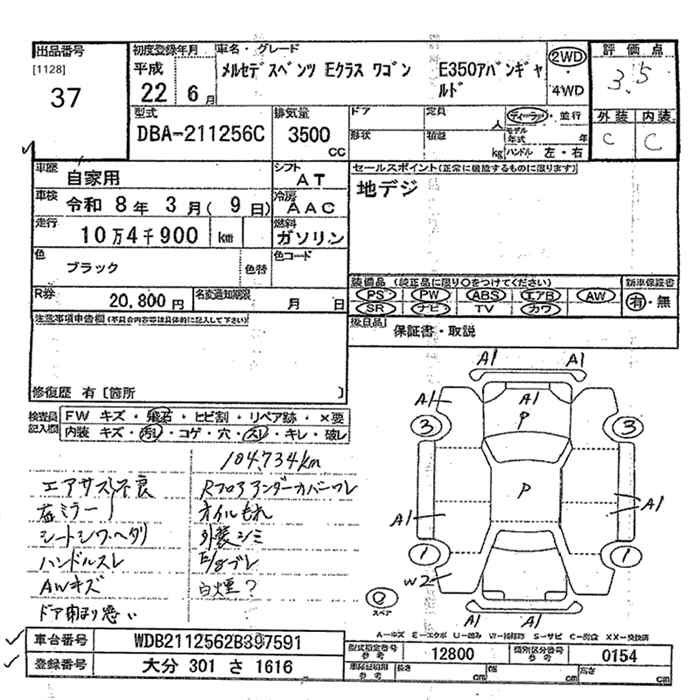 出品番号
[1128]
37
初度登録年月
平成
22年 6月
車名・グレード
メルセデスベンツ Eクラス ワゴン E350アバンギャ
ルド
2WD
4WD
評価点
3.5
型式
DBA-211256C
排気量
3500
CC
ドア
定員
人
形状
積載
kg
ディーラー・並行
モデル
年式 年
ハンドル 左・右
外装 内装
C C
車歴
自家用
シフト
AT
セールスポイント(正常に機能するものに限ります)
地デジ
車検
令和 8年 3月( 9日)
冷房
AAC
走行
10万4千900 km
燃料
ガソリン
色
ブラック
色替
色コード
R券
20,800円
名変通知期限
月 日
装備品 (純正品に限り○をつけてください)
PS PW ABS エアB AW
SR ナビ TV カワ
新車保証書
有・無
後日品
保証書・取説
注意事項申告欄(不具合内容等は具体的に記入して下さい)
修復歴 有〔箇所 〕
検査員
記入欄
FW キズ・飛石・ヒビ割・リペア跡・X要
内装 キズ・汚レ・コゲ・穴・スレ・キレ・破レ
104,734km
エアサス不良
右ミラー
シートシワ・ヘタリ
ハンドルスレ
AWキズ
ドア閉まり悪い
Rフロアアンダーカバーワレ
オイルもれ
外装シミ
E/gブレ
白煙?
A1 A1
A1 A1
P
3 3
P
A1 A1
1 1
W2
A1
A1 A1
スペア
A-キズ E-エクボ U-凹み W-補修跡 S-サビ C-腐食 XX-交換済
車台番号
WDB2112562B397591
登録番号
大分 301 さ 1616
型式指定番号
参考
12800
類別区分番号
参考
0154
車検証記載
参考
長さ cm
幅 cm
高さ cm